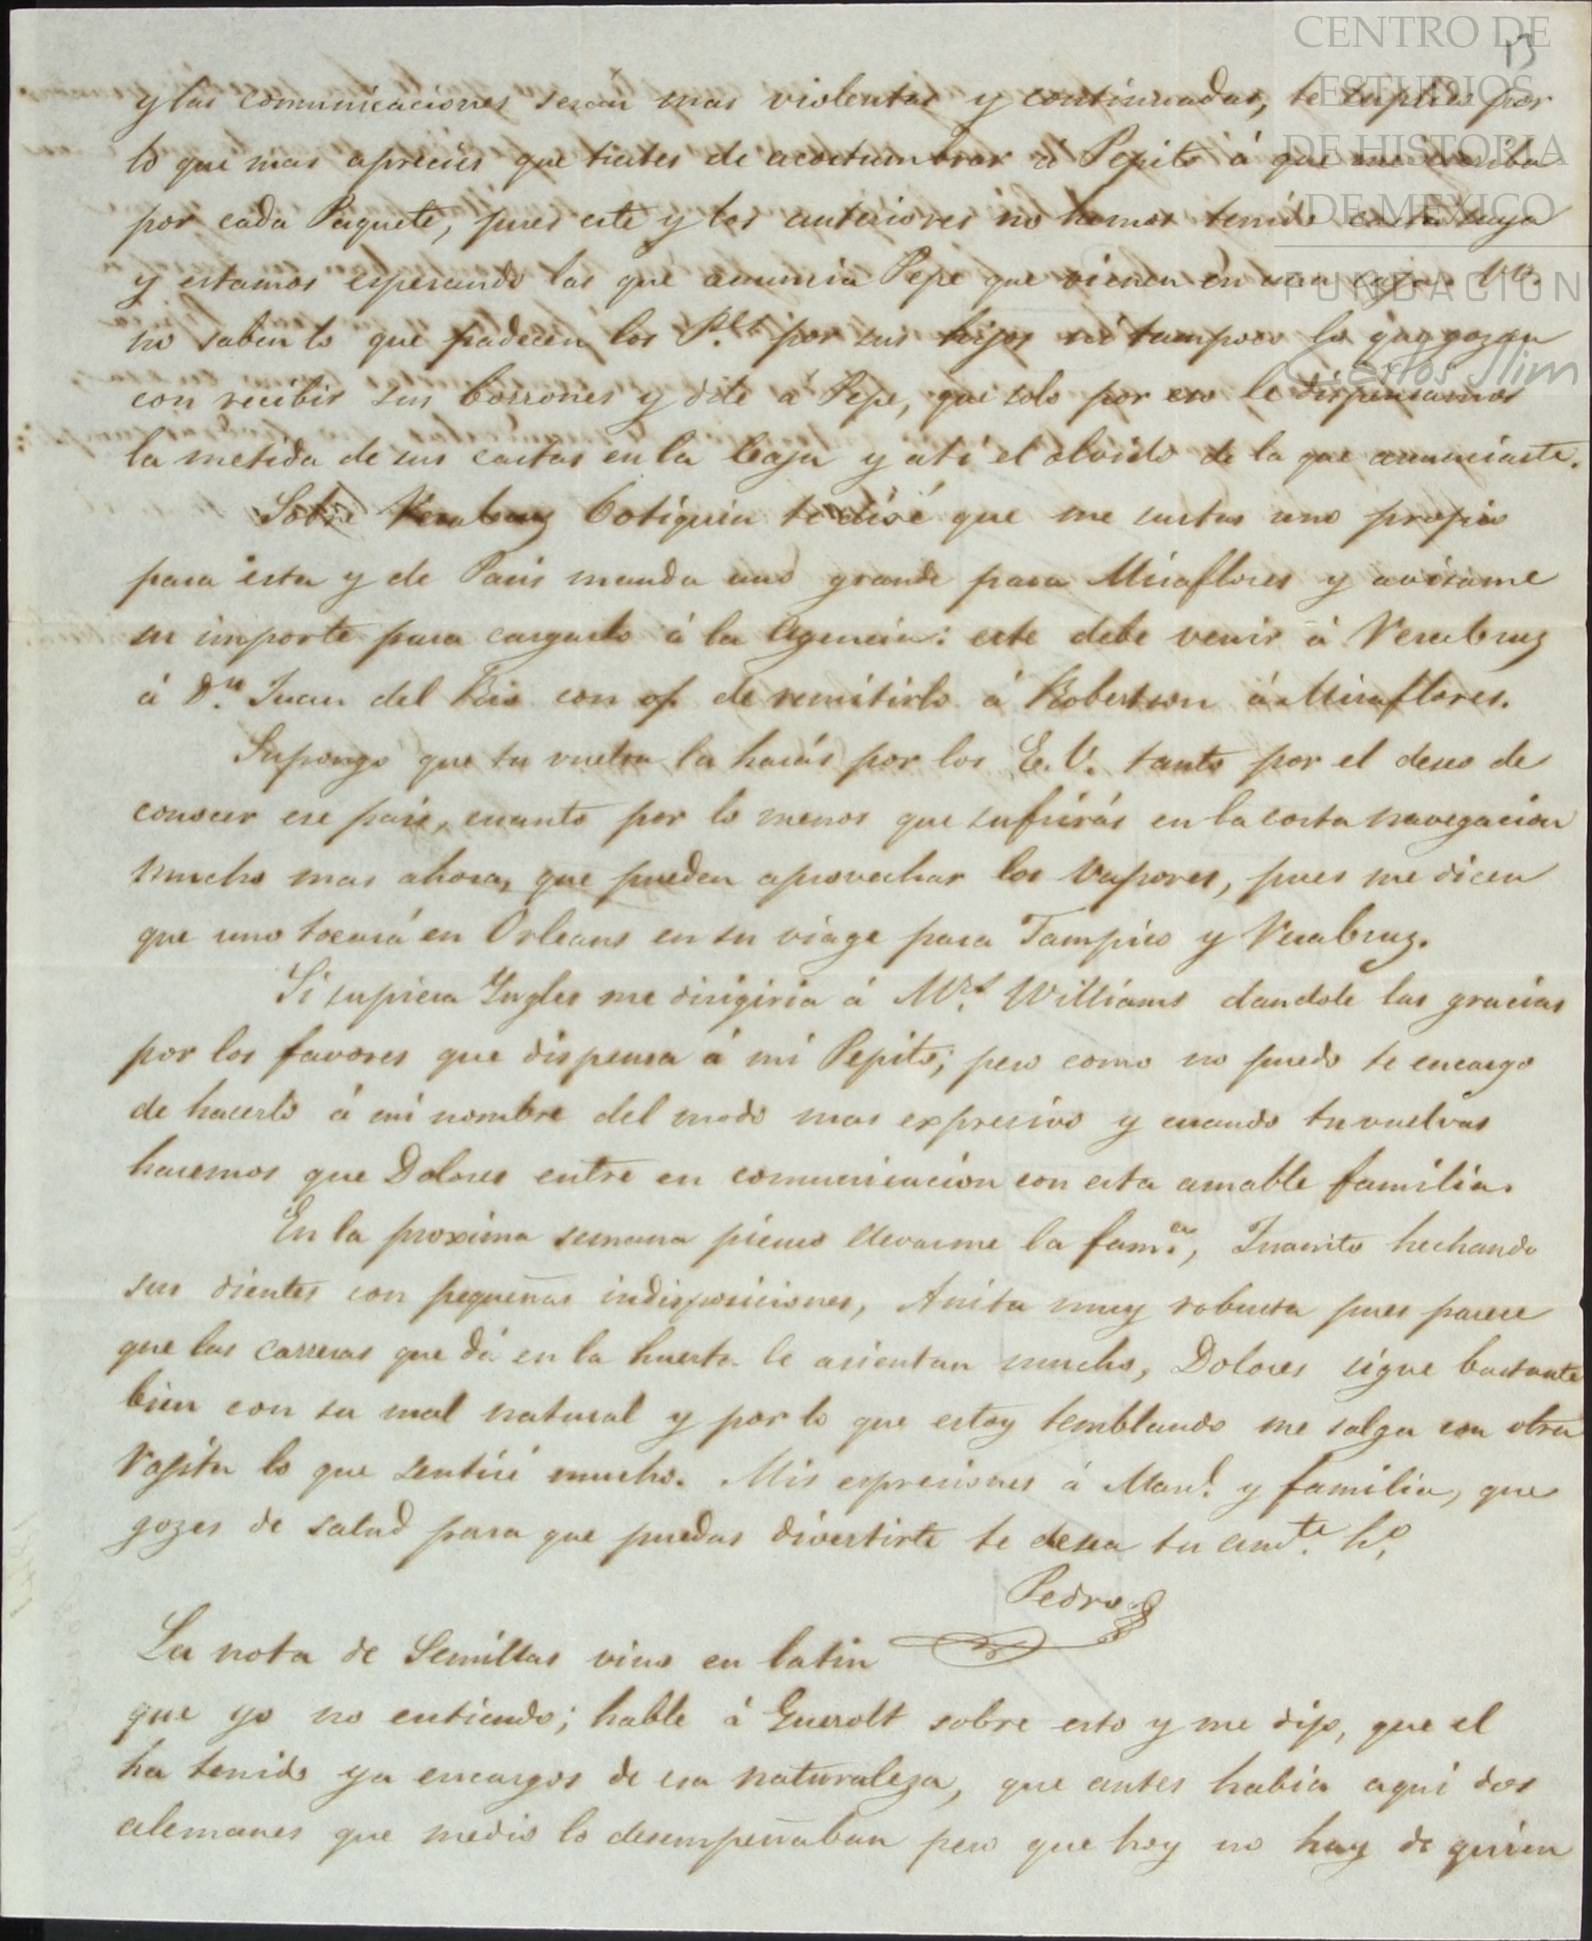 CENTRO DE
ESTUDIOS
DE HISTORIA
DE MÉXICO
FUNDACIÓN
Carlos Slim
13
y las comunicaciones serán mas violentas y continuadas, te suplico por
lo que mas aprecies que trates de acostumbrar á Pepito á que me escriba
por cada Paquete, pues este y los anteriores no hemos tenido carta suya
y estamos esperando las que anuncia Pepe que vienen en una caja. VV.
no saben lo que padecen los P.es por sus hijos ni tampoco lo que gozan
con recibir sus borrones y dile á Pepe, que solo por eso le dispensamos
la metida de sus cartas en la Caja y á ti el olvido de la que anunciaste.
Sobre Botiquin te diré que me surtas uno propio
para esta y de Paris manda uno grande para Miraflores y avisame
su importe para cargarlo á la Agencia: este debe venir á Verabruz
á Dn. Juan del Rio con of. de remitirlo á Robertson á Miraflores.
Supongo que tu vuelta la harás por los E.U. tanto por el deseo de
conocer ese pais, cuanto por lo menos que sufrirás en la corta navegacion
mucho mas ahora, que pueden aprovechar los Vapores, pues me dicen
que uno tocará en Orleans en su viage para Tampico y Verabruz.
Si supiera Yngles me dirigiria á Mrs. Williams dandole las gracias
por los favores que dispensa á mi Pepito; pero como no puedo te encargo
de hacerlo á mi nombre del modo mas expresivo y cuando tu vuelvas
haremos que Dolores entre en comunicacion con esta amable familia.
En la proxima semana pienso llevarme la fam.a, Juanito hechando
sus dientes con pequeñas indisposiciones, Anita muy robusta pues parece
que las carreras que dá en la huerta le asientan mucho, Dolores sigue bastante
bien con su mal natural y por lo que estoy temblando me salga con otra
Vasita lo que sentiré mucho. Mis expresiones á Man.l y familia, que
gozes de salud para que puedas divertirte te desea tu am.te h.o
Pedro
La nota de Semillas vino en latin
que yo no entiendo; hable á Guerolt sobre esto y me dijo, que el
ha tenido ya encargos de esa naturaleza, que antes habia aqui dos
alemanes que medio lo desempeñaban pero que hoy no hay de quien